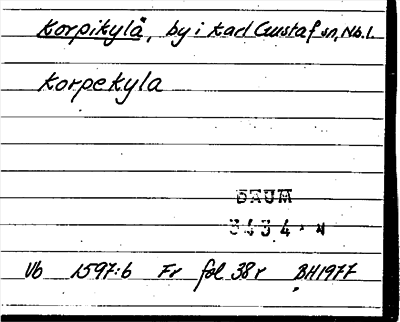 Korpikylä, by i Karl Gustaf sn, Nb. l.
Korpekyla
DAUM
3434 - N
Vb 1597:6 Fr fol 38 r BH1977